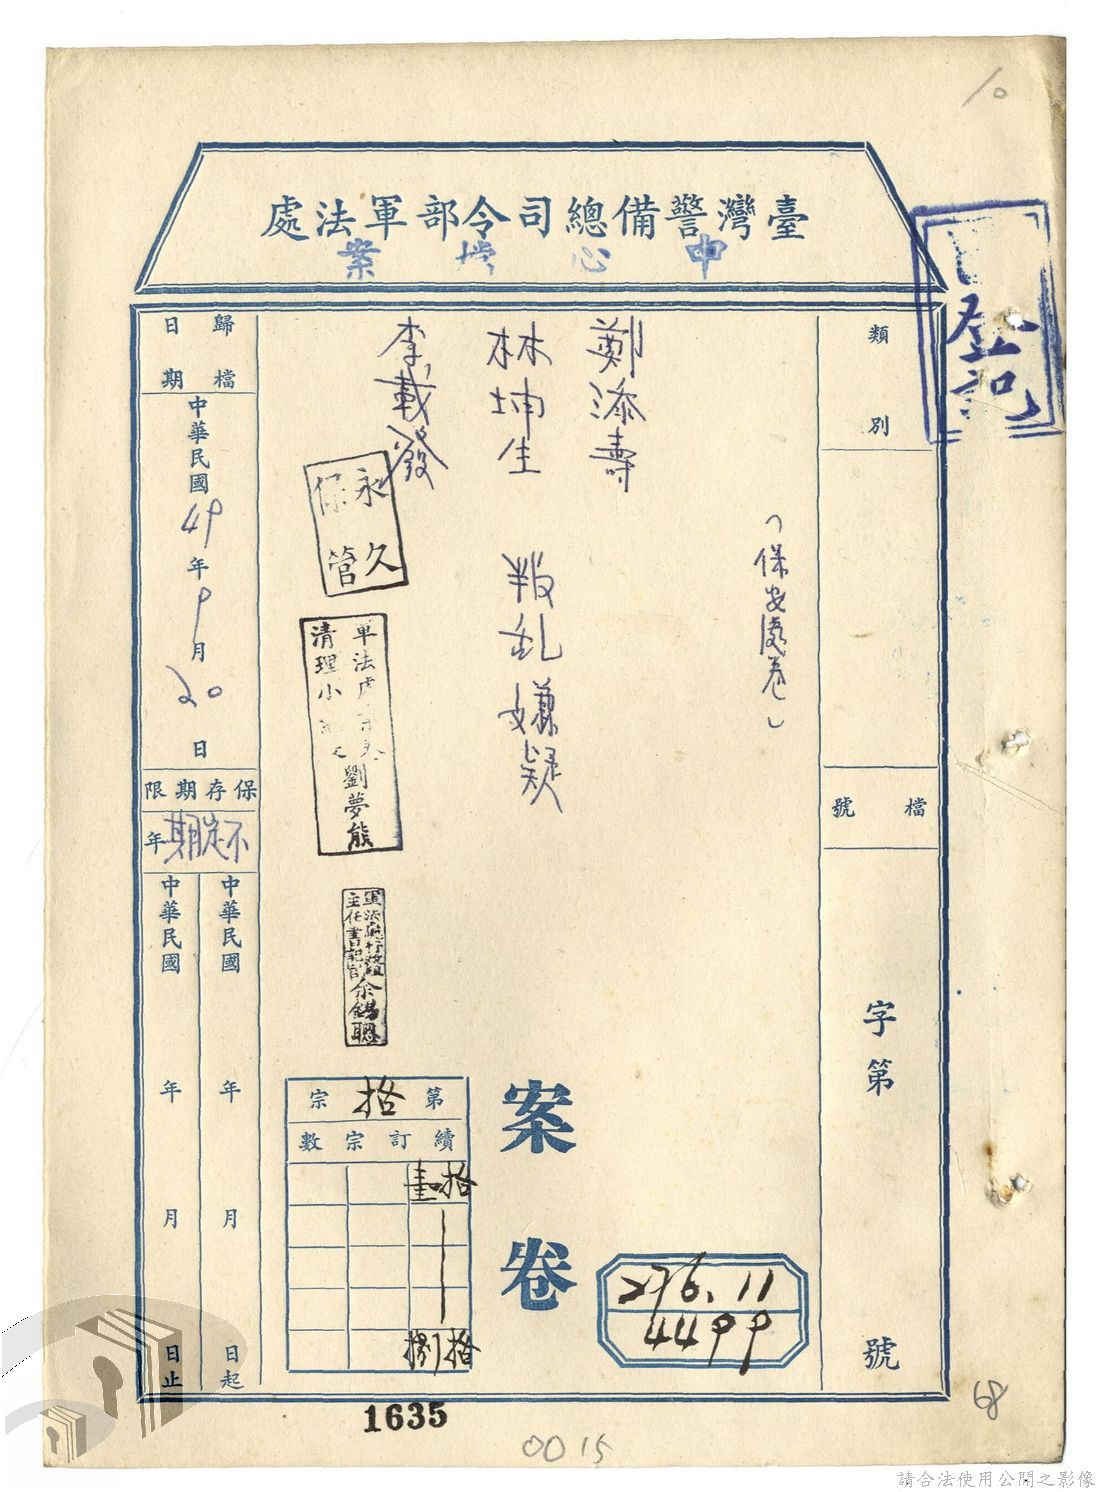 10
臺灣警備總司令部軍法處
中心檔案
登記
類別
檔號
字第
號
(保安處卷)
鄭添壽
林坤生 叛乱嫌疑
李載發
永久保管
軍法處
清理小
劉夢熊
軍法處行政組
主任書記官余錫聰
歸檔日期
中華民國49年9月20日
保存期限
不定期年
中華民國 年 月 日起
中華民國 年 月 日止
案卷
第拾宗
續訂宗數
拾壹
拾捌
276.11
4499
1635
0015
68
請合法使用公開之影像